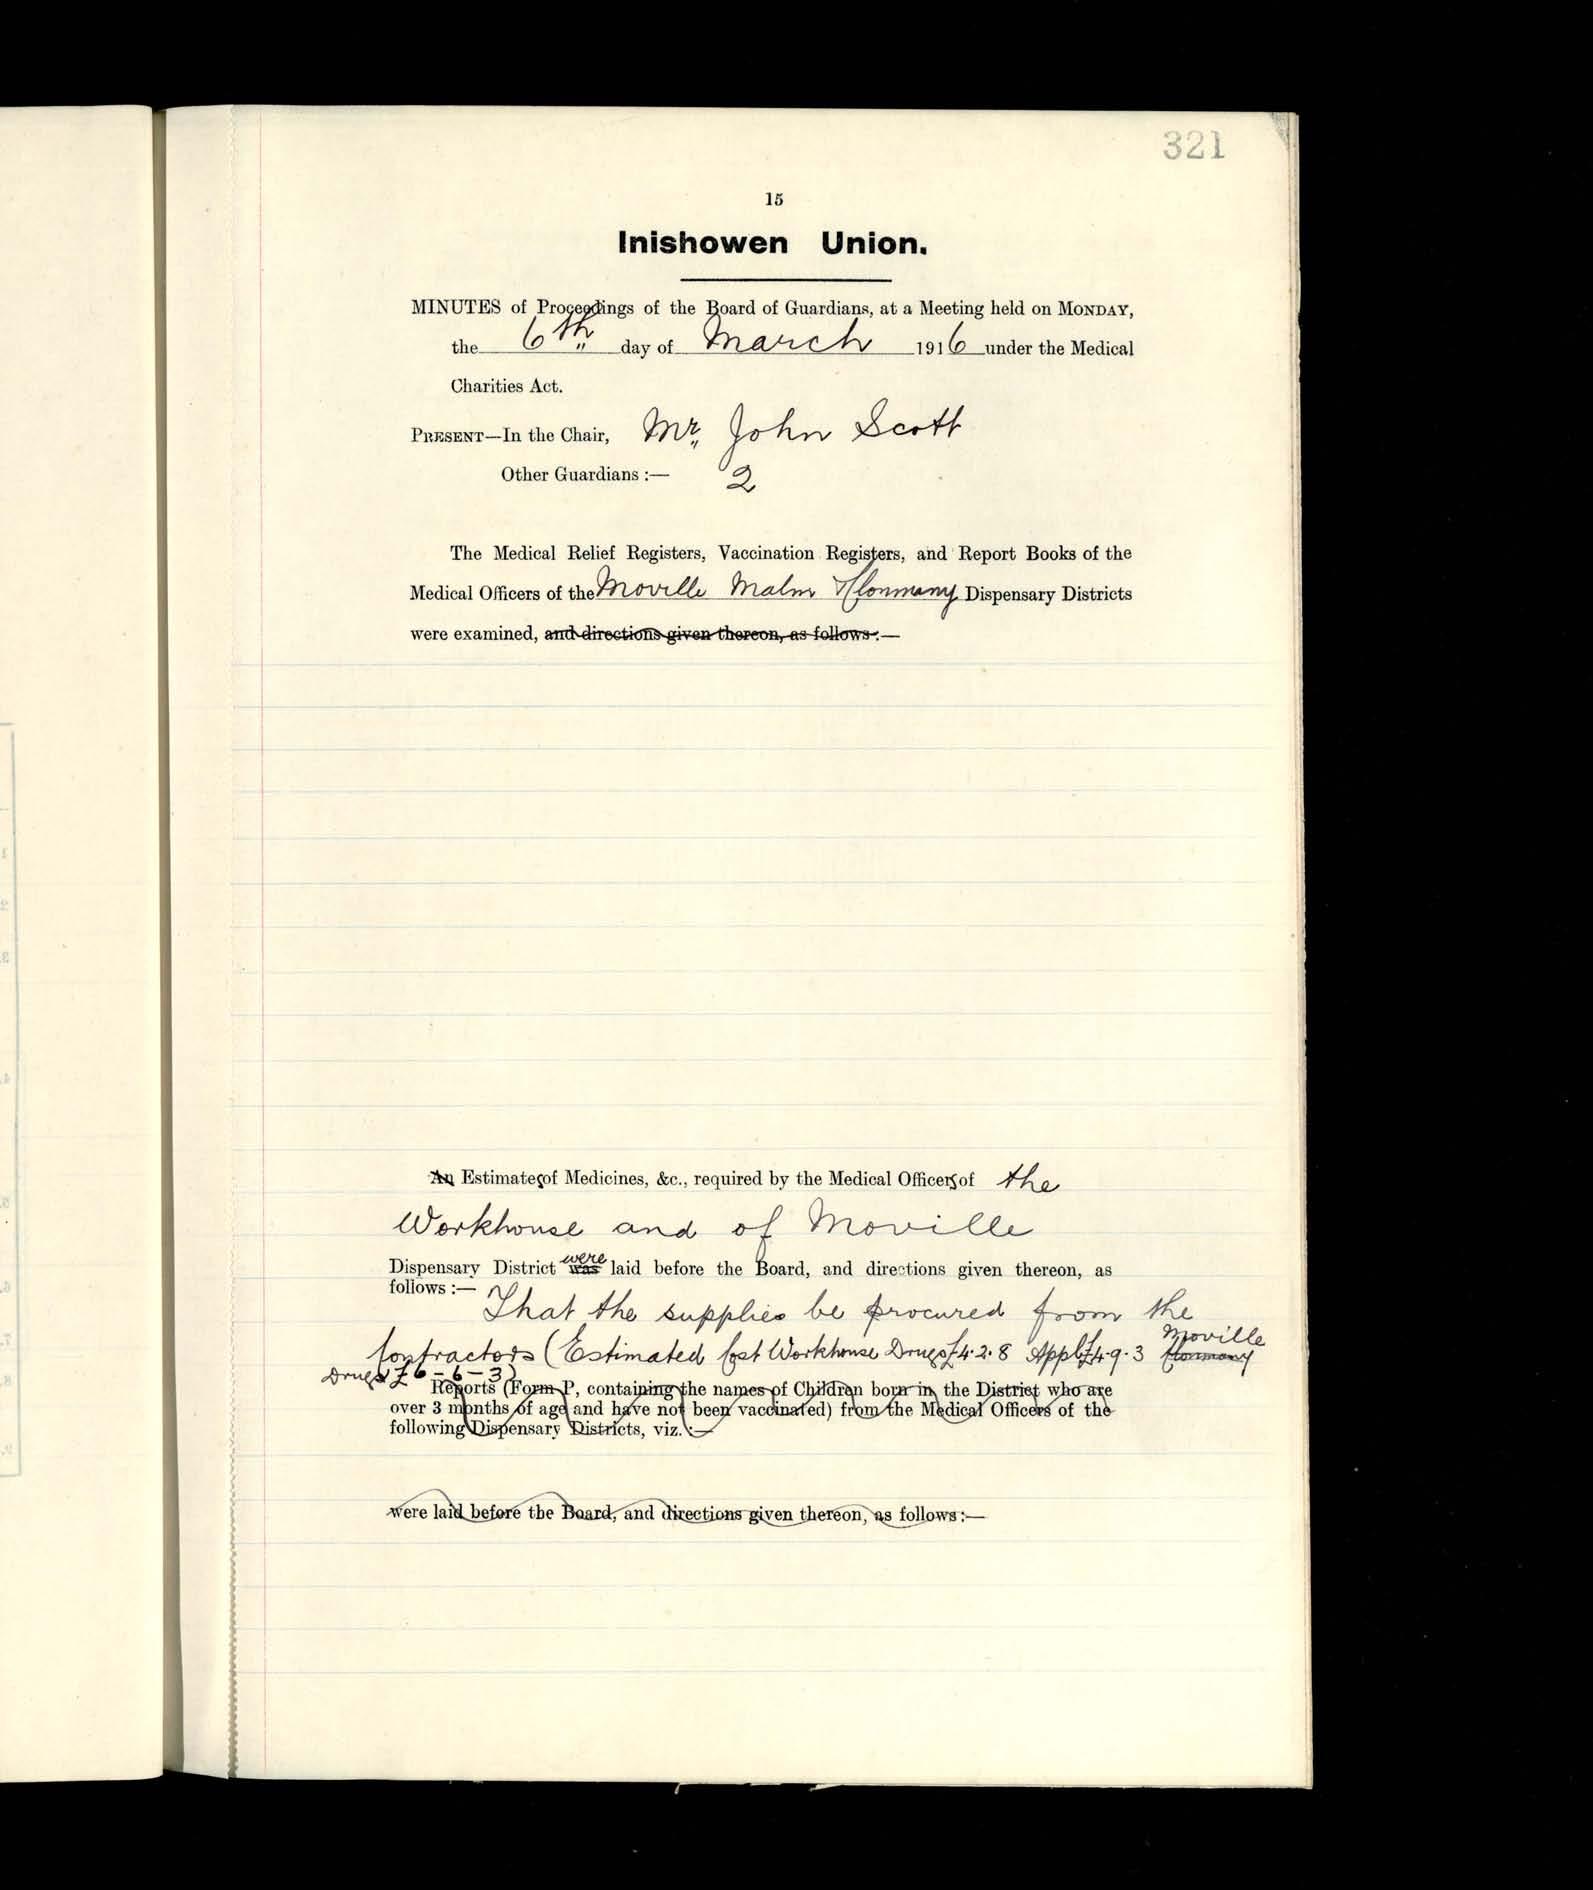 321
15
Inishowen Union.
MINUTES of Proceedings of the Board of Guardians, at a Meeting held on MONDAY,
the 6th day of March 1916 under the Medical
Charities Act.
PRESENT—In the Chair, Mr. John Scott
Other Guardians :— 2
The Medical Relief Registers, Vaccination Registers, and Report Books of the
Medical Officers of the Moville Malin & Clonmany Dispensary Districts
were examined, and directions given thereon, as follows :—
An Estimates of Medicines, &c., required by the Medical Officers of the
Workhouse and of Moville
were
Dispensary District was laid before the Board, and directions given thereon, as
follows :—
That the supplies be procured from the
Moville
Contractors (Estimated Cost Workhouse Drugs £4.2.8 Appl £4.9.3 Clonmany
Drugs £6-6-3)
Reports (Form P, containing the names of Children born in the District who are
over 3 months of age and have not been vaccinated) from the Medical Officers of the
following Dispensary Districts, viz. :—
were laid before the Board, and directions given thereon, as follows :—